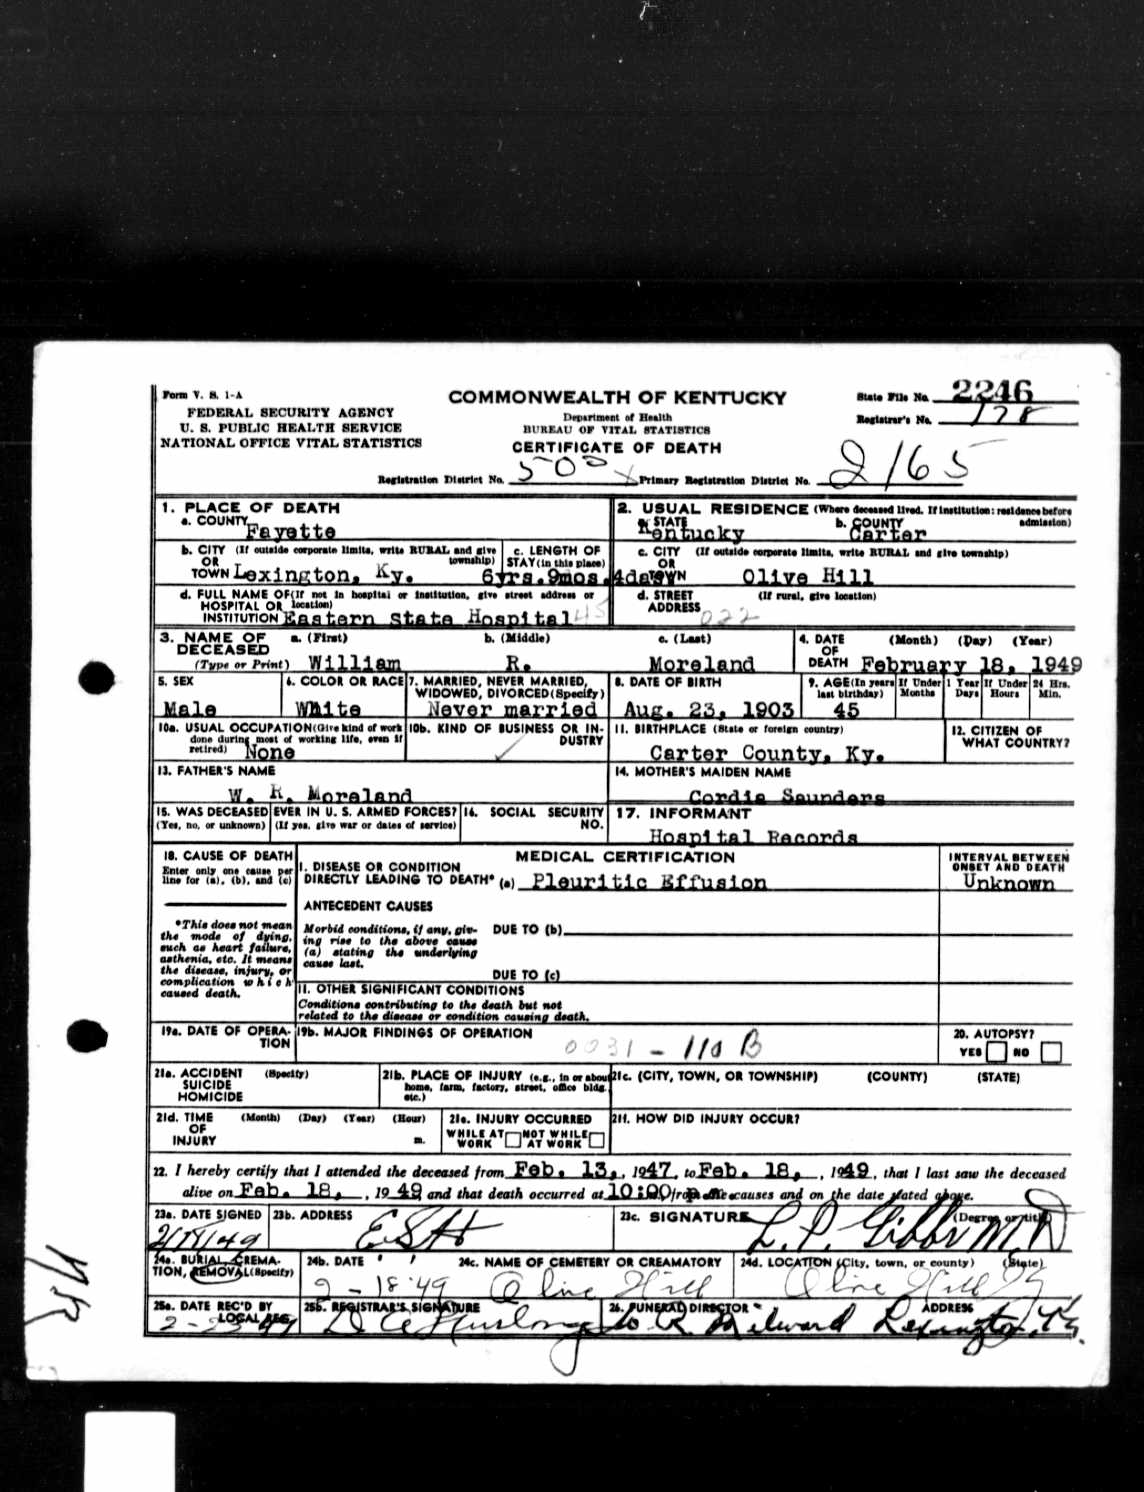 Form V. S. 1-A
FEDERAL SECURITY AGENCY
U. S. PUBLIC HEALTH SERVICE
NATIONAL OFFICE VITAL STATISTICS
COMMONWEALTH OF KENTUCKY
Department of Health
BUREAU OF VITAL STATISTICS
CERTIFICATE OF DEATH
State File No. 2246
Registrar's No. 178
Registration District No. 500
Primary Registration District No. 2165
1. PLACE OF DEATH
a. COUNTY Fayette
b. CITY (If outside corporate limits, write RURAL and give township)
OR
TOWN Lexington, Ky.
c. LENGTH OF STAY (in this place)
6yrs.9mos.4days
d. FULL NAME OF (If not in hospital or institution, give street address or location)
HOSPITAL OR
INSTITUTION Eastern State Hospital 45
2. USUAL RESIDENCE (Where deceased lived. If institution: residence before admission)
a. STATE Kentucky
b. COUNTY Carter
c. CITY (If outside corporate limits, write RURAL and give township)
OR
TOWN Olive Hill
d. STREET (If rural, give location)
ADDRESS 022
3. NAME OF DECEASED (Type or Print)
a. (First) William
b. (Middle) R.
c. (Last) Moreland
4. DATE OF DEATH (Month) (Day) (Year)
February 18, 1949
5. SEX
Male
6. COLOR OR RACE
White
7. MARRIED, NEVER MARRIED, WIDOWED, DIVORCED (Specify)
Never married
8. DATE OF BIRTH
Aug. 23, 1903
9. AGE (In years last birthday)
45
If Under 1 Year
Months Days
If Under 24 Hrs.
Hours Min.
10a. USUAL OCCUPATION (Give kind of work done during most of working life, even if retired)
None
10b. KIND OF BUSINESS OR INDUSTRY
11. BIRTHPLACE (State or foreign country)
Carter County, Ky.
12. CITIZEN OF WHAT COUNTRY?
13. FATHER'S NAME
W. R. Moreland
14. MOTHER'S MAIDEN NAME
Cordie Saunders
15. WAS DECEASED EVER IN U. S. ARMED FORCES?
(Yes, no, or unknown) (If yes, give war or dates of service)
16. SOCIAL SECURITY NO.
17. INFORMANT
Hospital Records
18. CAUSE OF DEATH
Enter only one cause per line for (a), (b), and (c)
*This does not mean the mode of dying, such as heart failure, asthenia, etc. It means the disease, injury, or complication which caused death.
MEDICAL CERTIFICATION
I. DISEASE OR CONDITION
DIRECTLY LEADING TO DEATH* (a) Pleuritic Effusion
INTERVAL BETWEEN ONSET AND DEATH
Unknown
ANTECEDENT CAUSES
Morbid conditions, if any, giving rise to the above cause (a) stating the underlying cause last.
DUE TO (b)
DUE TO (c)
II. OTHER SIGNIFICANT CONDITIONS
Conditions contributing to the death but not related to the disease or condition causing death.
19a. DATE OF OPERATION
19b. MAJOR FINDINGS OF OPERATION
0031 - 110 B
20. AUTOPSY?
YES NO
21a. ACCIDENT (Specify)
SUICIDE
HOMICIDE
21b. PLACE OF INJURY (e.g., in or about home, farm, factory, street, office bldg. etc.)
21c. (CITY, TOWN, OR TOWNSHIP) (COUNTY) (STATE)
21d. TIME OF INJURY (Month) (Day) (Year) (Hour)
m.
21e. INJURY OCCURRED
WHILE AT WORK NOT WHILE AT WORK
21f. HOW DID INJURY OCCUR?
22. I hereby certify that I attended the deceased from Feb. 13, 1947, to Feb. 18, 1949, that I last saw the deceased
alive on Feb. 18, 1949 and that death occurred at 10:00 p m. from the causes and on the date stated above.
23a. DATE SIGNED
23b. ADDRESS
ESH
23c. SIGNATURE (Degree or title)
L. P. Gibbs M. D
24a. BURIAL, CREMATION, REMOVAL (Specify)
24b. DATE
2-18-49
24c. NAME OF CEMETERY OR CREAMATORY
Olive Hill
24d. LOCATION (City, town, or county) (State)
Olive Hill Ky
25a. DATE REC'D BY LOCAL REG.
25b. REGISTRAR'S SIGNATURE
26. FUNERAL DIRECTOR ADDRESS
W. R. Milward Lexington, Ky.